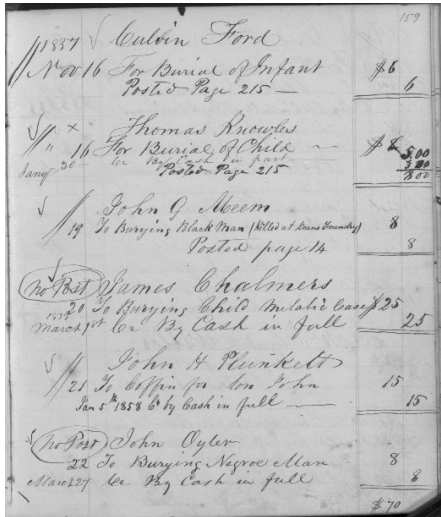 159
1857 Calvin Ford
Nov 16 For Burial of Infant $6
Posted Page 215 — 6
x Thomas Knowles
" 16 For Burial of Child — $8 5.00
Jany 20 Cr By Cash in part 3.00
Posted Page 215 8.00
John G Meem
19 To Burying Black Man (Killed at Deans Foundry) 8
Posted page 14 8
No Post James Chalmers
20 To Burying Child Metalic Case $25
1858 March 1st Cr By Cash in full 25
John H Plunkett
21 To Coffin for Son John 15
Jan 5th 1858 Cr by Cash in full — 15
No Post John Oyler
22 To Burying Negroe Man 8
March 27 Cr By Cash in full 8
$70